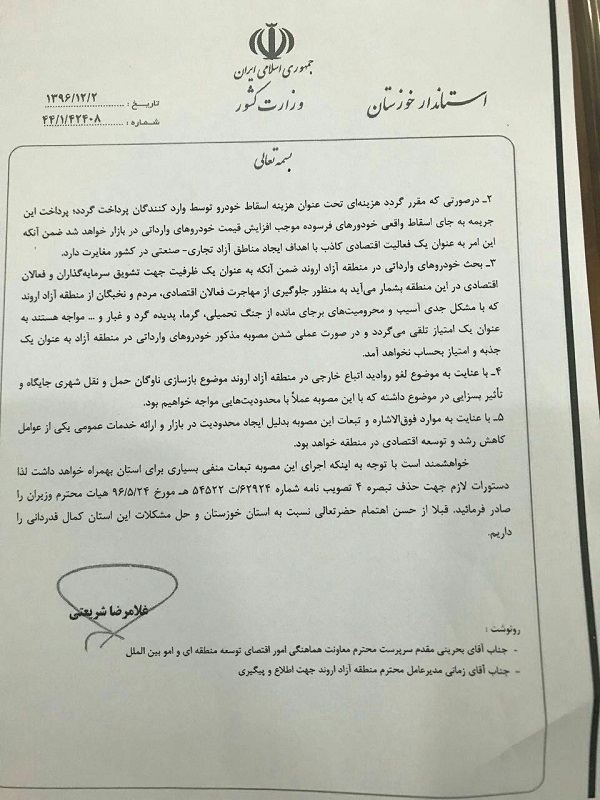 جمهوری اسلامی ایران
وزارت کشور
استاندار خوزستان
تاریخ : ۱۳۹۶/۱۲/۲
شماره : ۴۴/۱/۴۲۴۰۸
بسمه تعالی
۲ـ درصورتی که مقرر گردد هزینه‌ای تحت عنوان هزینه اسقاط خودرو توسط وارد کنندگان پرداخت گردد؛ پرداخت این
جریمه به جای اسقاط واقعی خودورهای فرسوده موجب افزایش قیمت خودروهای وارداتی در بازار خواهد شد ضمن آنکه
این امر به عنوان یک فعالیت اقتصادی کاذب با اهداف ایجاد مناطق آزاد تجاری- صنعتی در کشور مغایرت دارد.
۳ـ بحث خودروهای وارداتی در منطقه آزاد اروند ضمن آنکه به عنوان یک ظرفیت جهت تشویق سرمایه‌گذاران و فعالان
اقتصادی در این منطقه بشمار می‌آید به منظور جلوگیری از مهاجرت فعالان اقتصادی، مردم و نخبگان از منطقه آزاد اروند
که با مشکل جدی آسیب و محرومیت‌های برجای مانده از جنگ تحمیلی، گرما، پدیده گرد و غبار و ... مواجه هستند به
عنوان یک امتیاز تلقی می‌گردد و در صورت عملی شدن مصوبه مذکور خودروهای وارداتی در منطقه آزاد به عنوان یک
جذبه و امتیاز بحساب نخواهد آمد.
۴ـ با عنایت به موضوع لغو روادید اتباع خارجی در منطقه آزاد اروند موضوع بازسازی ناوگان حمل و نقل شهری جایگاه و
تأثیر بسزایی در موضوع داشته که با این مصوبه عملاً با محدودیت‌هایی مواجه خواهیم بود.
۵ـ با عنایت به موارد فوق‌الاشاره و تبعات این مصوبه بدلیل ایجاد محدودیت در بازار و ارائه خدمات عمومی یکی از عوامل
کاهش رشد و توسعه اقتصادی در منطقه خواهد بود.
خواهشمند است با توجه به اینکه اجرای این مصوبه تبعات منفی بسیاری برای استان بهمراه خواهد داشت لذا
دستورات لازم جهت حذف تبصره ۴ تصویب نامه شماره ۶۲۹۲۴/ت ۵۴۵۲۲ هـ مورخ ۹۶/۵/۲۴ هیات محترم وزیران را
صادر فرمائید. قبلا از حسن اهتمام حضرتعالی نسبت به استان خوزستان و حل مشکلات این استان کمال قدردانی را
داریم.
غلامرضا شریعتی
رونوشت :
- جناب آقای بحرینی مقدم سرپرست محترم معاونت هماهنگی امور اقتصای توسعه منطقه ای و امو بین الملل
- جناب آقای زمانی مدیرعامل محترم منطقه آزاد اروند جهت اطلاع و پیگیری